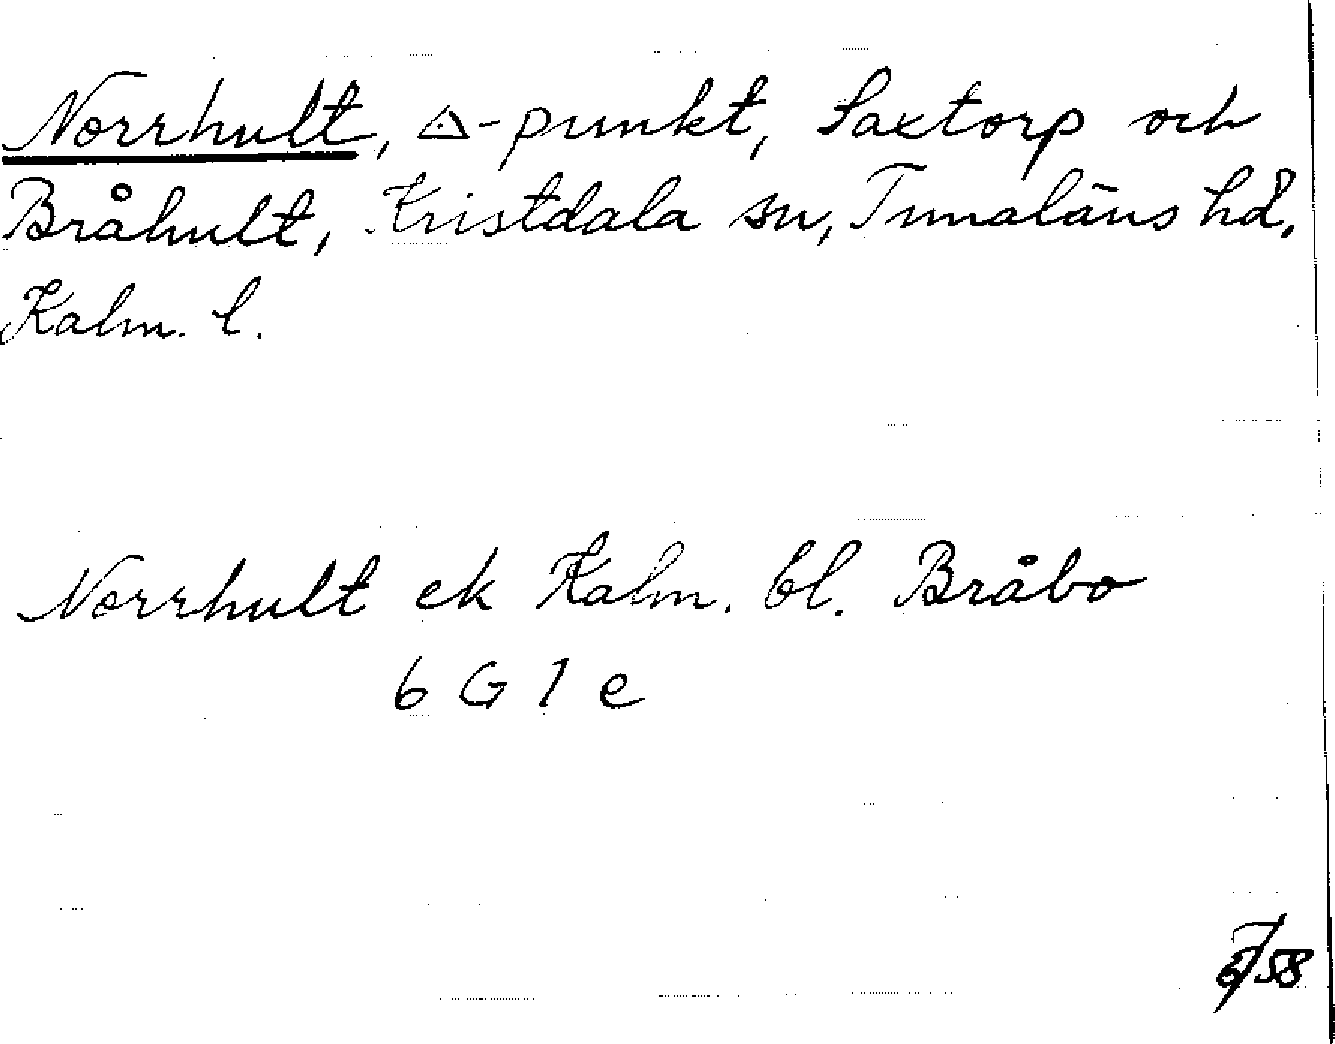 Norrhult, △-punkt, Saxtorp och
Bråhult, Kristdala sn, Tunaläns hd,
Kalm. l.
Norrhult ek Kalm. bl. Bråbo
6 G 1 e
/58